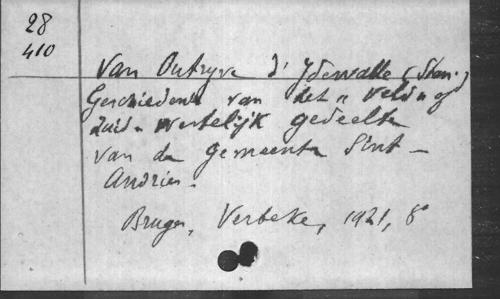 28
410
Van Outryve d'Ydewalle (Stan.)
Geschiedenis van het "veld" of
zuid-westelijk gedeelte
van de gemeente Sint-
Andries.
Bruges, Verbeke, 1921, 8°